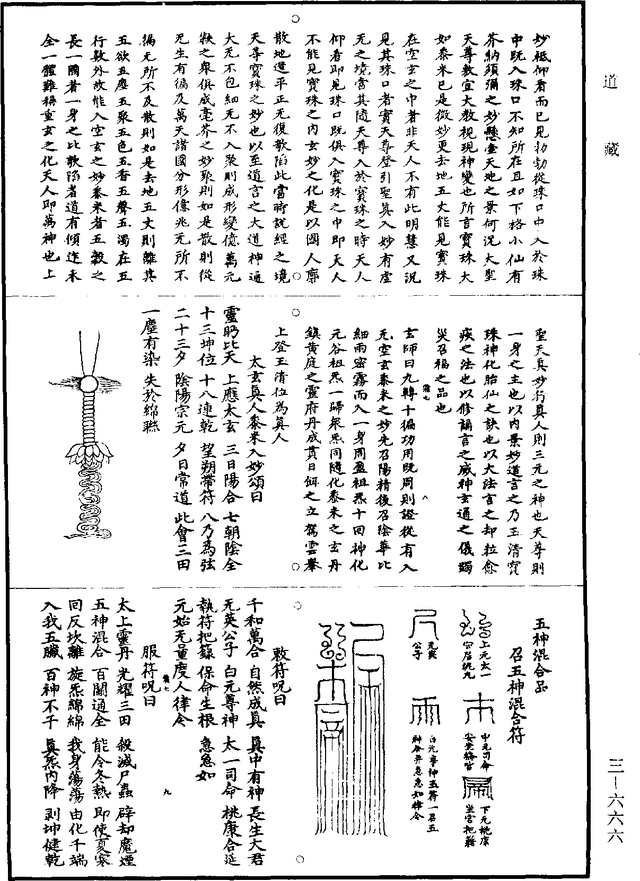 道藏
妙祗仰看而已見勃勃從珠口中入於珠
中既入珠口不知所在且如下格小仙有
芥納須彌之妙懸壺天地之景何況大聖
天尊敷宣大教視現神變也所言寶珠大
如黍米已是微妙更去地五丈能見寶珠
在空玄之中者非天人不有此明慧又說
見其珠口者寶天尊登引聖真入妙有虛
无之境當其隨天尊入於寶珠之時天人
仰看即見珠口既俱入寶珠之中即天人
不能見寶珠之內玄妙之化是以國人廓
散地還平正无復敧陷此當時說經之境
天尊寶珠之妙也以至道言之大道神通
大无不包細无不入聚則成形變億萬无
鞅之衆俱成毫芥之妙聚則如是散則從
无生有徧及萬天諸國分形億兆无所不
徧无所不及散則如是去地五丈則離其
五欲五塵五衆五色五香五聲五濁在五
行數外故能入空玄之妙黍米者五穀之
長一國者一身之比敧陷者道有傾近本
全一體難稱重玄之化天人即萬神也上
聖天真妙行真人則三元之神也天尊則
一身之主也以內景妙道言之乃玉清寶
珠神化胎仙之訣也以大法言之却粒愈
疾之法也以修誦言之威神玄通之儀蠲
災召福之品也
玄師曰九轉十徧功用既周則證從有入
无空玄黍米之妙先召陽精後召陰華比
細雨密霧而入一身周盈祖炁十回神化
元谷祖炁一歸衆炁同隨化黍米之玄丹
鎮黃庭之靈府丹成貫日餌之立駕雲轝
上登玉清位爲真人
太玄真人黍米入妙頌曰
靈昞比天 上應太玄 三日陽合 七朝陰全
十三坤位 十八連乾 望朔帶符 八乃爲弦
二十三夕 陰陽宗元 夕日常道 此會三田
一塵有染 失於綿聮
五神混合品
召五神混合符
上元太一
中元司命
下元桃康
无英
公子
白元尊神五算一召五
神合并急急如律令
敕符呪曰
千和萬合 自然成真 真中有神 長生大君
无英公子 白元尊神 太一司命 桃康合延
執符把籙 保命生根 急急如
元始无量度人律令
服符呪曰
太上靈丹 光耀三田 殺滅尸蟲 辟却魔煙
五神混合 百關通全 能令冬熱 即使夏寒
回反坎離 旋炁綿綿 我身蕩蕩 由化千端
入我五臟 百神不干 真炁內降 剥坤健乾
三-六六六